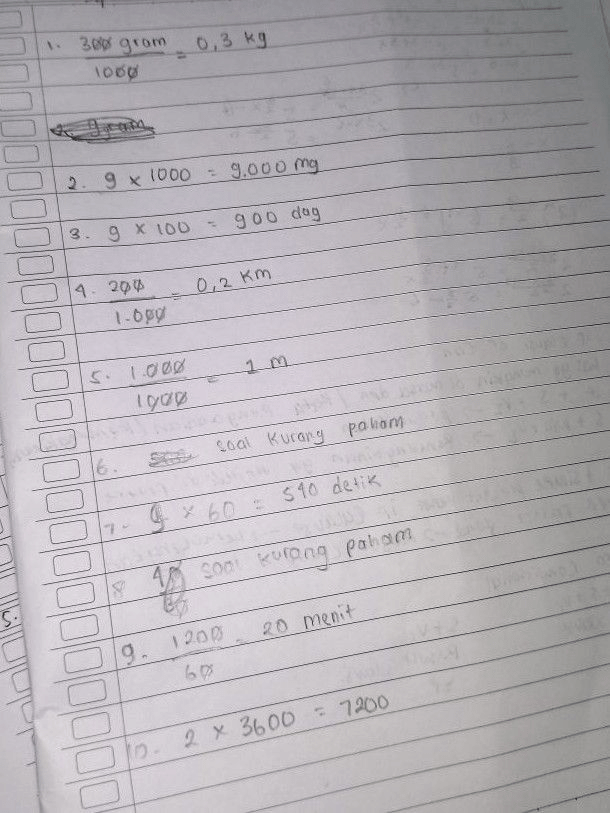 1. 300 gram / 1000 = 0,3 kg
2. 9 x 1000 = 9.000 mg
3. 9 x 100 = 900 dag
4. 200 / 1.000 = 0,2 Km
5. 1.000 / 1000 = 1 m
6. soal kurang paham
7. 9 x 60 = 540 detik
8 soal kurang paham
9. 1200 / 60 = 20 menit
10. 2 x 3600 = 7200